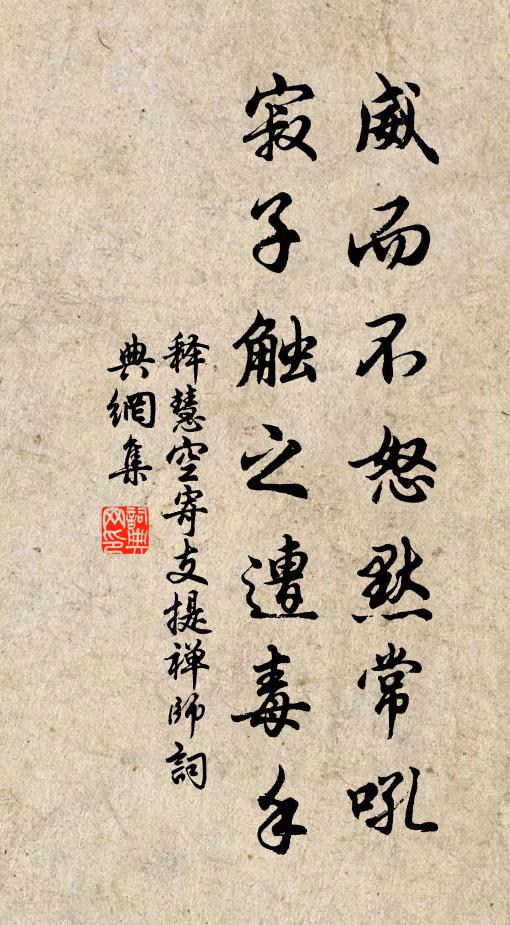 威而不怒默常吼
寂子触之遭毒手
释慧空寄支提禅师詞
典網集
詞典网印